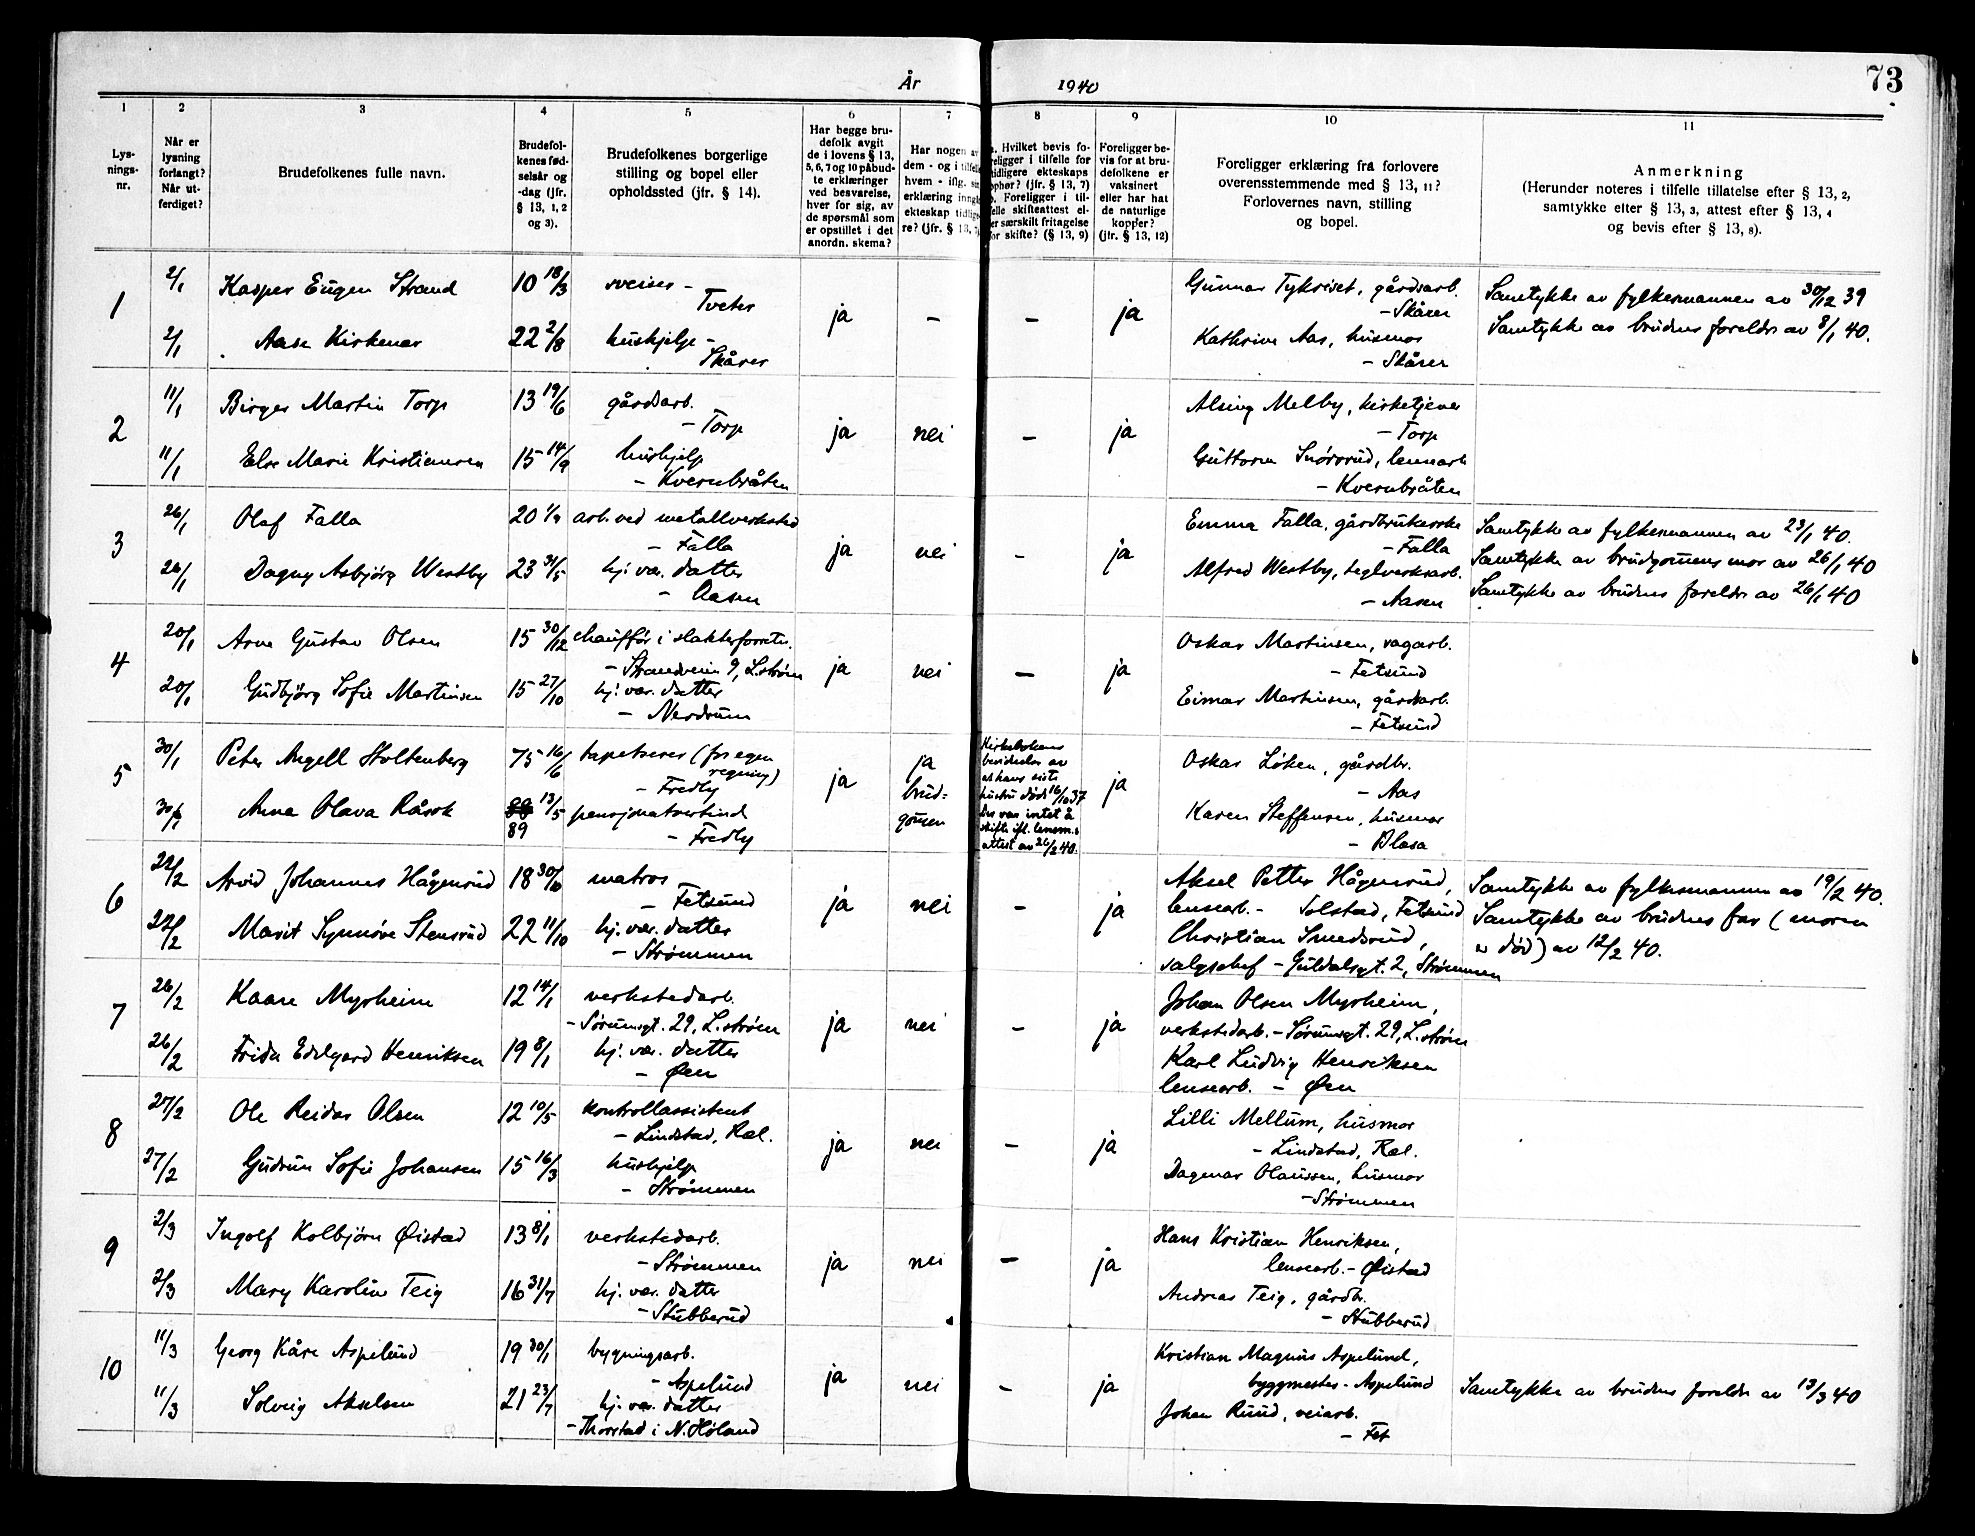 År 1940
73
1 2 3 4 5 6 7 8 9 10 11
Lys-
nings-
nr.
Når er
lysning
forlangt?
Når ut-
ferdiget?
Brudefolkenes fulle navn.
Brudefol-
kenes fød-
selsår og
-dag (jfr.
§ 13, 1, 2
og 3).
Brudefolkenes borgerlige
stilling og bopel eller
opholdssted (jfr. § 14).
Har begge bru-
defolk avgit
de i lovens § 13,
5, 6, 7 og 10 påbud-
te erklæringer
ved besvarelse,
hver for sig, av
de spørsmål som
er opstillet i det
anordn. skema?
Har nogen av
dem - og i tilfelle
hvem - iflg. sin
erklæring inngått
ekteskap tidlige-
re? (jfr. § 13, 7)
Hvilket bevis fo-
religger i tilfelle for
tidligere ekteskaps
ophør? (jfr. § 13, 7)
Foreligger i til-
felle skifteattest el-
er særskilt fritagelse
for skifte? (§ 13, 9)
Foreligger be-
vis for at bru-
defolkene er
vaksinert
eller har hat
de naturlige
kopper?
(jfr. § 13, 12)
Foreligger erklæring fra forlovere
overensstemmende med § 13, 11?
Forlovernes navn, stilling
og bopel.
Anmerkning
(Herunder noteres i tilfelle tillatelse efter § 13, 2,
samtykke efter § 13, 3, attest efter § 13, 4
og bevis efter § 13, 8).
1
2/1 Kasper Eugen Strand 10 18/3 sveiser -
Tveter
ja - - ja
2/1 Aase Kirkener 22 2/8 hushjelp -
Skårer
Gunnar Tykriset, gårdsarb.
- Skårer
Kathrine Aas, husmor
- Skårer
Samtykke av fylkesmannen av 30/12 39
Samtykke av brudens foreldre av 8/1 40.
2
11/1 Birger Martin Torp 13 19/6 gårdsarb.
- Torp
ja nei - ja
11/1 Else Marie Kristiansen 15 14/9 hushjelp
- Kvernbråten
Alsing Melby, kirketjener
- Torp
Guttorm Snørsrud, lensearb
- Kvernbråten
3
26/1 Olaf Falla 20 1/9 arb. ved metallverksted
- Falla
ja nei - ja
26/1 Dagny Asbjørg Westby 23 31/5 hj. vær. datter
- Aasen
Emma Falla, gårdbrukerske
- Falla
Alfred Westby, teglverksarb.
- Aasen
Samtykke av fylkesmannen av 23/1 40.
Samtykke av brudgommens mor av 26/1 40
Samtykke av brudens foreldre av 26/1 40
4
20/1 Arne Gustav Olsen 15 30/12 chauffør i slakterforretn.
- Strandveien 9, L.strøm
ja nei - ja
20/1 Gudbjørg Sofie Martinsen 15 27/10 hj. vær. datter
- Nerdrum
Oskar Martinsen, sagarb.
- Fetsund
Eimar Martinsen, gårdsarb.
- Fetsund
5
30/1 Peter Angell Stoltenberg 75 16/6 tapetserer (for egen
regning)
- Fredly
ja
ja
brud-
gommen
30/1 Anna Olava Råsok 88 13/5 pensjonatvertinde
89
- Fredly
Kirkebokens
bevidnelse av
at hans siste
hustru døde 16/10 37
Der var intet å
skifte ifl. lensm.s
attest av 26/2 40.
ja
Oskar Løken, gårdbr.
- Aas
Karen Steffensen, husmor
- Blæsa
6
22/2 Arvid Johannes Hågensrud 18 30/10 matros
- Fetsund
ja nei - ja
22/2 Marit Synnøve Stensrud 22 11/10 hj. vær. datter
- Strømmen
Aksel Petter Hågensrud,
lensearb. - Solstad, Fetsund
Christian Smedsrud,
salgschef - Guldalsgt. 2, Strømmen
Samtykke av fylkesmannen av 19/2 40.
Samtykke av brudens far (moren
er død) av 12/2 40.
7
26/2 Kaare Myrheim 12 14/1 verkstedarb.
- Sørumsgt. 29, L.strøm
ja nei - ja
26/2 Frida Edelgard Henriksen 19 8/1 hj. vær. datter
- Øen
Johan Olsen Myrheim,
verkstedarb. - Sørumsgt. 29, L.strøm
Karl Ludvig Henriksen
lensearb. - Øen
8
27/2 Ole Reidar Olsen 12 10/5 kontrollassistent
- Lindstad, Ræl.
ja nei - ja
27/2 Gudrun Sofie Johansen 15 16/3 hushjelp
- Strømmen
Lilli Mellum, husmor
- Lindstad, Ræl.
Dagmar Olaussen, husmor
- Strømmen
9
2/3 Ingolf Kolbjørn Øistad 13 8/1 verkstedarb.
- Strømmen
ja nei - ja
2/3 Mary Karoline Teig 16 31/7 hj. vær. datter
- Stubberud
Hans Kristian Henriksen,
lensearb. - Øistad
Andreas Teig, gårdbr.
- Stubberud
10
11/3 Georg Kåre Aspelund 19 30/1 bygningsarb.
- Aspelund
ja nei - ja
11/3 Solveig Akselsen 21 23/7 hj. vær. datter
- Thorstad i N. Høland
Kristian Magnus Aspelund,
byggmester - Aspelund
Johan Ruud, veiarb.
- Fet
Samtykke av brudens foreldre av 13/3 40